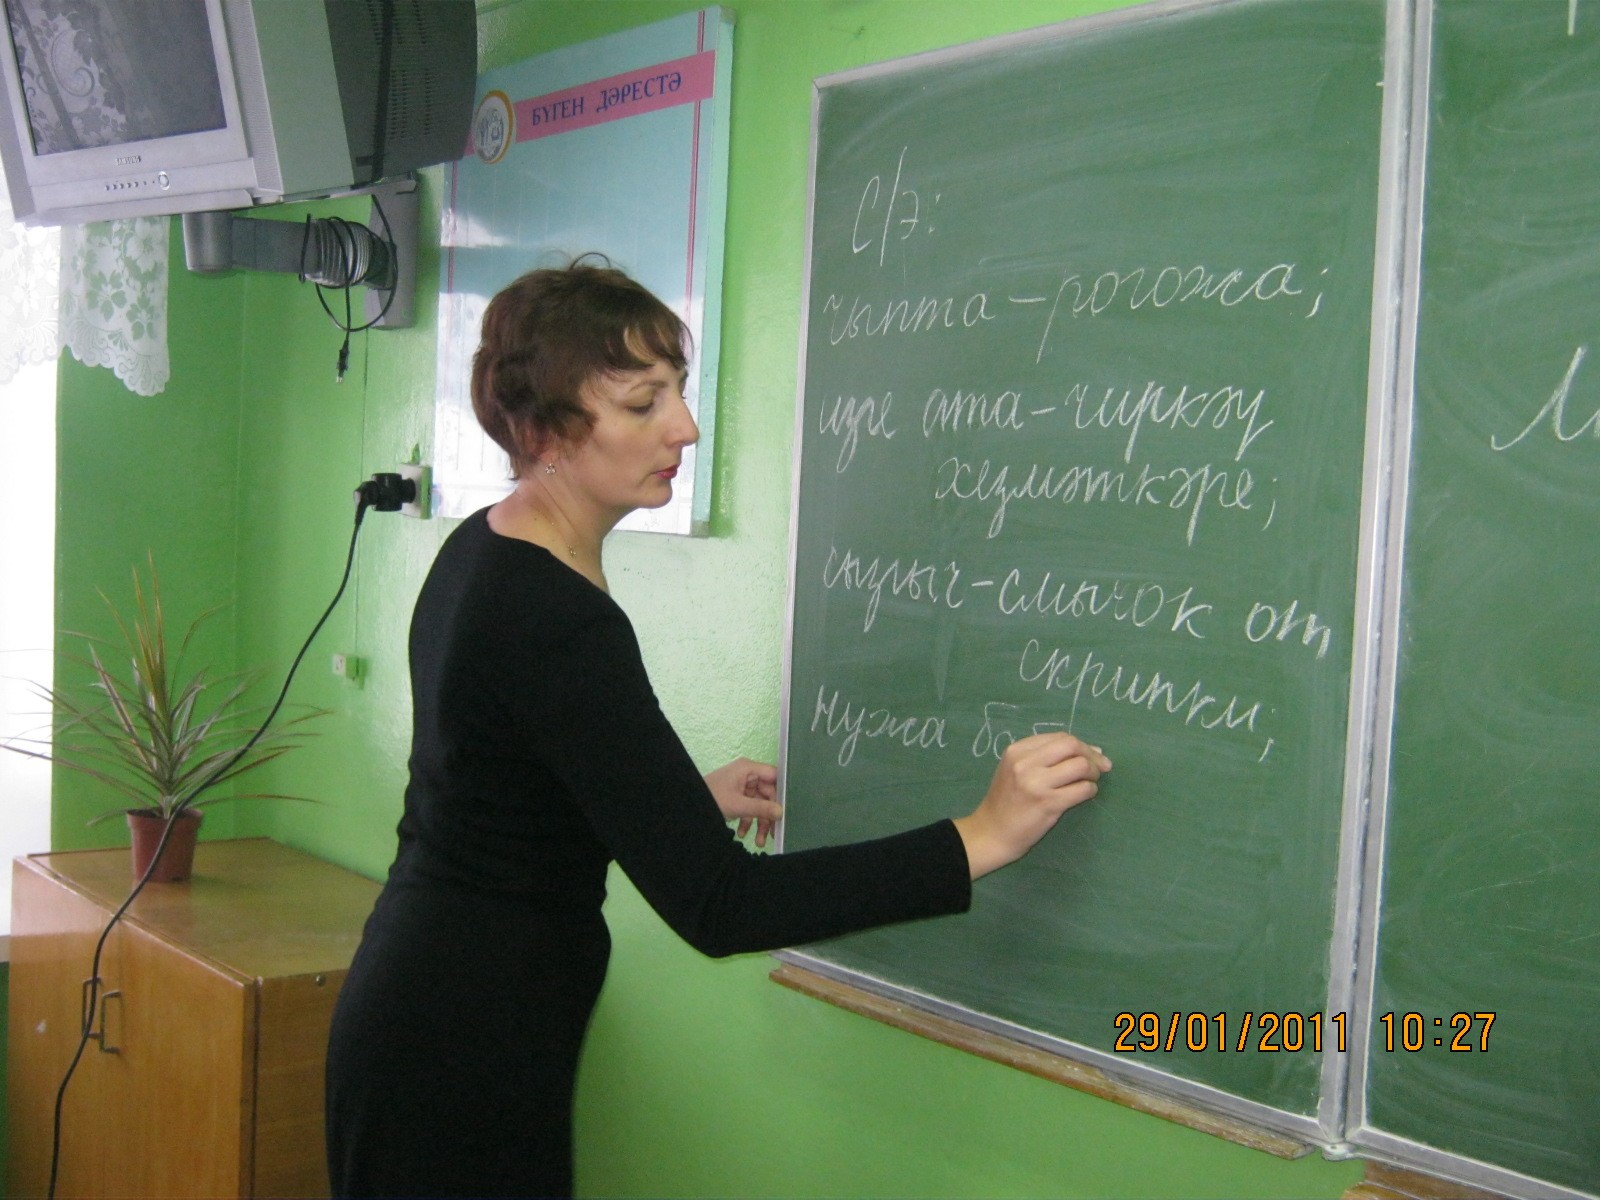 SAMSUNG
БҮГЕН ДӘРЕСТӘ
С/Э:
чыпта – рогожа;
изге ата – чиркәү
хезмәткәре;
сызгыч – смычок от
скрипки;
Нужа
29/01/2011 10:27